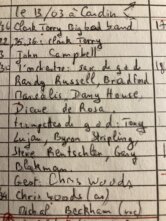 le 13/03 à Cardin
36 Clark Terry Big bad band
32 35.36: Clark Terry
John Campbell
30 Standards: sax de g à d
Randy Russell, Bradford
Marsalis, Dany House,
Diane de Rosa
trompettes de g à d: Tony
Lujan, Byron Stripling,
Steve Rentschler, Greg
Blakmann.
Geot: Chris Woods
34 Chris Woods (as)
Michel Beckham (
17
18